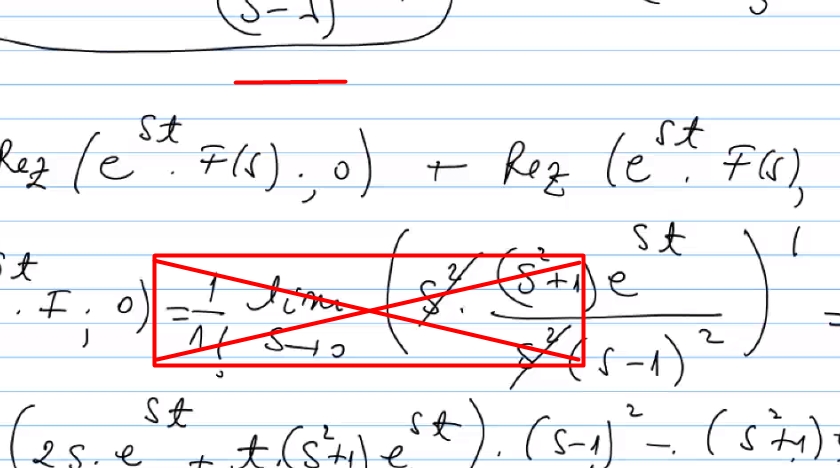 (s-1)
Rez (e^{st} . F(s) ; 0) + Rez (e^{st} . F(s),
st . F ; 0) = \frac{1}{1!} lim_{s→0} ( s^2 . \frac{(s^2+1) e^{st}}{s^2 (s-1)^2} )' =
(2s . e^{st} + t.(s^2+1) e^{st}) . (s-1)^2 - (s^2+1)